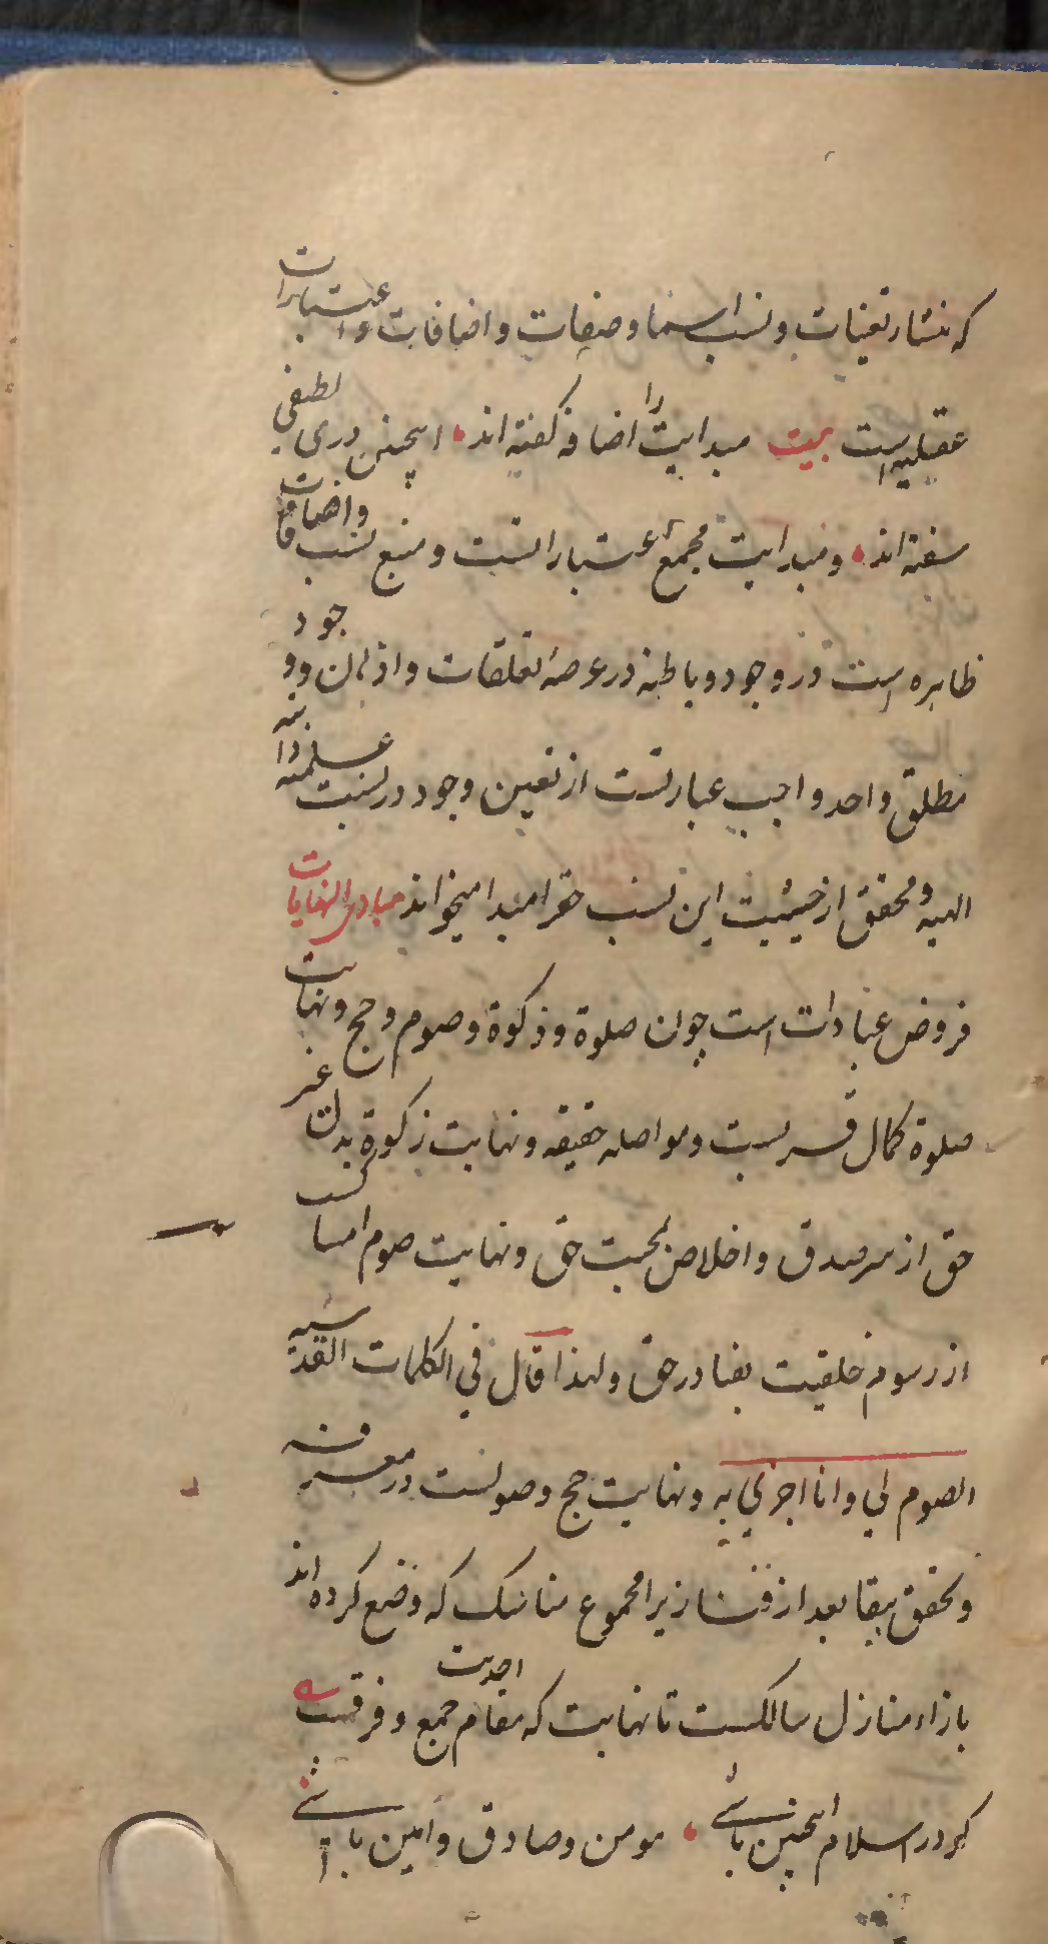 که منشاء تعینات و نسب اسما و صفات و اضافات و اعتبارات
عقلیه است بیت مبدایت را اضافه گفته‌اند اینچنین دری لطفی
سفته‌اند و مبدایت مجمع اعتبارانست و منبع نسب و اضافات
ظاهره است در وجود و باطنه در عرصهٔ تعلقات و اذهان و وجود
مطلق واحد واجب عبارتست از تعین وجود در نسبت علمیه ذاتیه
الهیه و محقق از حیثیت این نسب حقرا مبدا میخواند مبادی النهایات
فروض عبادات است چون صلوة و زکوة و صوم و حج و نهایت
صلوة کمال قربست و مواصله حقیقه و نهایت زکوة بذل غیر
حق از سر صدق و اخلاص لمحبت حق و نهایت صوم امساک
از رسوم خلقیت بفنا در حق و لهذا قال في الکلمات القدسیه
الصوم لي وانا اجزي به و نهایت حج وصولست در معرفه
و تحقق ببقا بعد از فنا زیرا مجموع مناسک که وضع کرده‌اند
بازاء منازل سالکست تا نهایت که مقام احدیت جمع و فرقست
کر در اسلام اینچنین باشی مومن و صادق و امین باشی